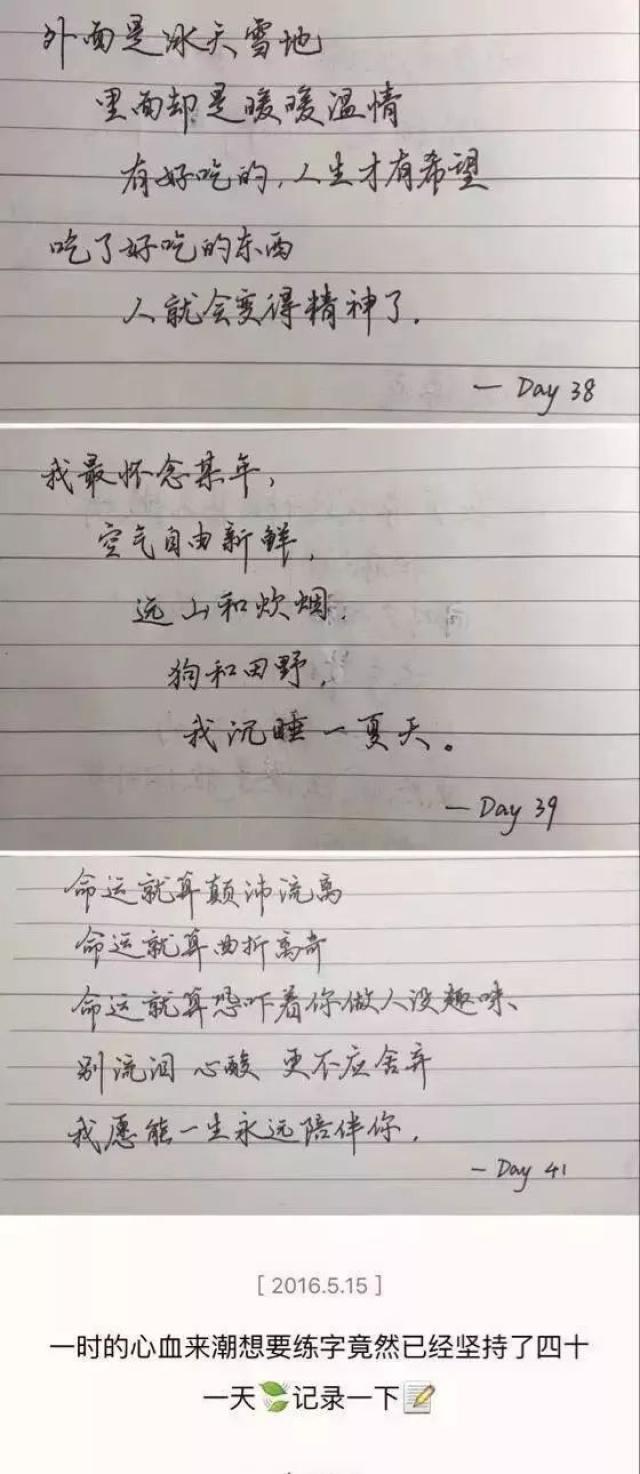 外面是冰天雪地
里面却是暖暖温情
有好吃的,人生才有希望
吃了好吃的东西
人就会变得精神了.
— Day 38
我最怀念某年,
空气自由新鲜,
远山和炊烟,
狗和田野,
我沉睡一夏天。
— Day 39
命运就算颠沛流离
命运就算曲折离奇
命运就算恐吓着你做人没趣味、
别流泪 心酸 更不应舍弃
我愿能一生永远陪伴你.
— Day 41
[ 2016.5.15 ]
一时的心血来潮想要练字竟然已经坚持了四十
一天🍃记录一下📝